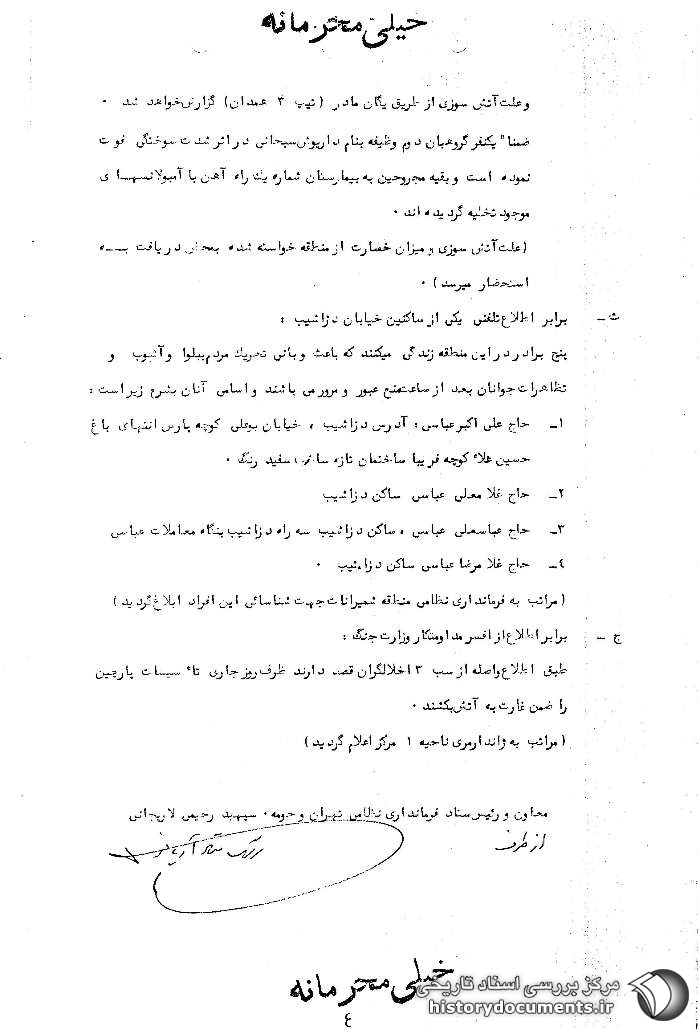 خیلی محرمانه
و علت آتش سوزی از طریق یگان مادر (تیپ ۳ همدان) گزارش خواهد شد ۰
ضمنا" یکنفر گروهبان دوم وظیفه بنام داریوش سبحانی در اثر شدت سوختگی فوت
نموده است و بقیه مجروحین به بیمارستان شماره یك راه آهن با آمبولانسهای
موجود تخلیه گردیده اند ۰
(علت آتش سوزی و میزان خصارت از منطقه خواسته شده بمحض دریافت به
استحضار میرسد) ۰
ث ـ برابر اطلاع تلفنی یکی از ساکنین خیابان دزاشیب :
پنج برادر در این منطقه زندگی میکنند که باعث و بانی تحریك مردم ببلوا و آشوب و
تظاهرات جوانان بعد از ساعت منع عبور و مرور می باشند و اسامی آنان بشرح زیر است :
۱ـ حاج علی اکبر عباسی : آدرس دزاشیب ، خیابان بوعلی کوچه پارس انتهای باغ
حسین علاء کوچه فریبا ساختمان تازه ساز، سفید رنگ ۰
۲ـ حاج غلامعلی عباسی ساکن دزاشیب
۳ـ حاج عباسعلی عباسی ، ساکن دزاشیب سه راه دزاشیب بنگاه معاملات عباسی
٤ـ حاج غلامرضا عباسی ساکن دزاشیب ۰
(مراتب به فرمانداری نظامی منطقه شمیرانات جهت شناسائی این افراد ابلاغ گردید)
ج ـ برابر اطلاع از افسر مداومتکار وزارت جنگ :
طبق اطلاع واصله از سب ۳ اخلالگران قصد دارند ظرف روز جاری تاٴسیسات پارچین
را ضمن غارت به آتش بکشند ۰
(مراتب به ژاندارمری ناحیه ۱ مرکز اعلام گردید)
معاون و رئیس ستاد فرمانداری نظامی تهران و حومه ۰ سپهبد رحیمی لاریجانی
از طرف
خیلی محرمانه
٤
مرکز بررسی اسناد تاریخی
historydocuments.ir